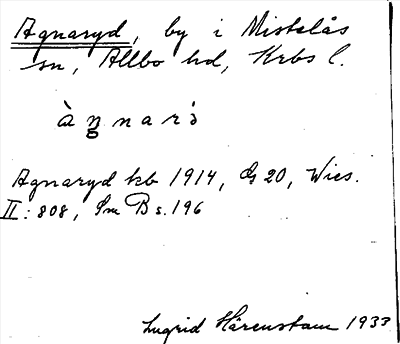 Agnaryd, by i Mistelås
sn, Allbo hd, Krbs l.
àŋnarə
Agnaryd kb 1914, G 20, Wies.
II: 808, Sm Bs. 196
Ingrid Hårenstam 1933